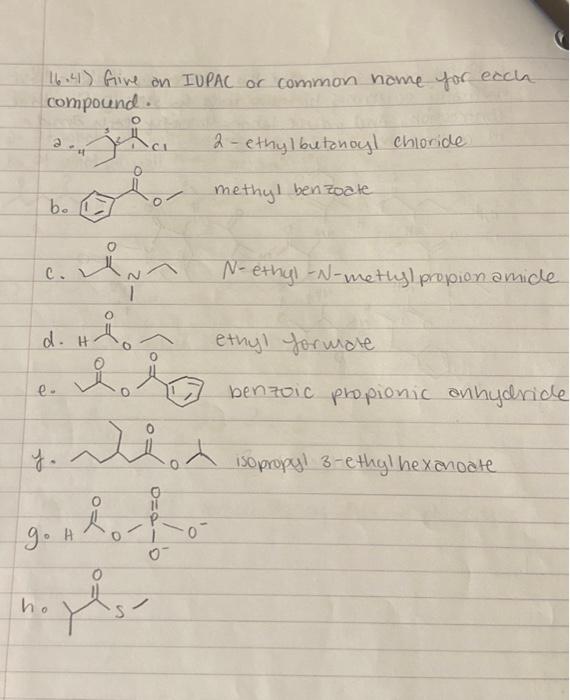 16.41) Give an IUPAC or common name for each
compound.
a. 4 3 2 1 O Cl 2-ethylbutanoyl chloride
b. O O methyl benzoate
c. O N N-ethyl-N-methylpropionamide
d. H O O ethyl formate
e. O O O benzoic propionic anhydride
f. O O isopropyl 3-ethylhexanoate
g. H O O O P O⁻ O⁻
h. O S